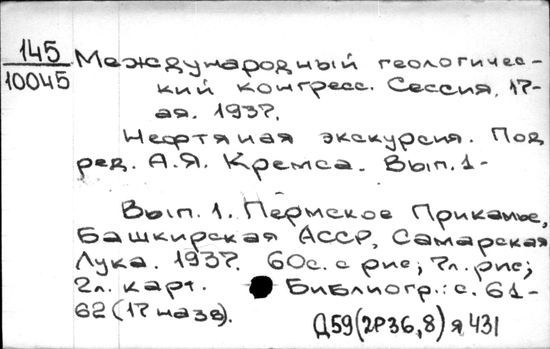 145
10045
Международный геологичес-
кий конгресс. Сессия, 17-
ая. 1937.
Нефтяная экскурсия. Под
ред. А.Я. Кремса. Вып.1-
Вып.1. Пермское Прикамье,
Башкирская АССР, Самарская
Лука. 1937. 60с. с рис; 7л. рис;
2л. карт. Библиогр.: с. 61-
62 (17 назв).
Д59(2Р36,8)я431